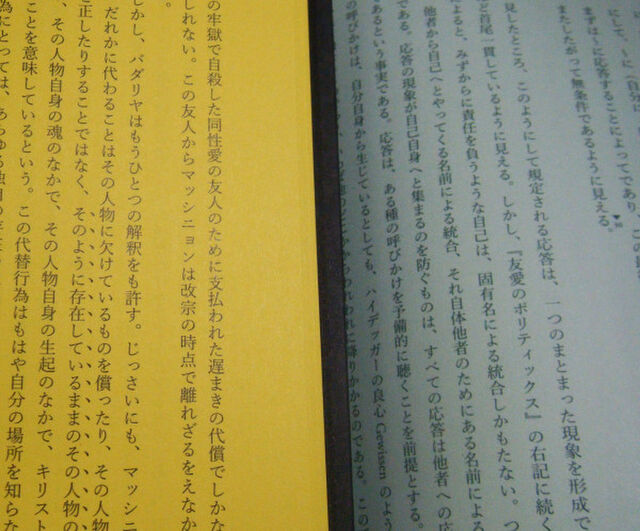 にして、
まずは〜に応答することによってであり、こ
またしたがって無条件であるように見える。
見したところ、このようにして規定される応答は、一つのまとまった現象を形成で
ど首尾一貫しているように見える。しかし、『友愛のポリティックス』の右記に続
によると、みずからに責任を負うような自己は、固有名による統合しかもたない。つ
他者から自己へとやってくる名前による統合、それ自体他者のためにある名前による
である。応答の現象が自己自身へと集まるのを防ぐものは、すべての応答は他者への応
あるという事実である。応答は、ある種の呼びかけを予備的に聴くことを前提とする。
の呼びかけは、自分自身から生じているとしても、ハイデッガーの良心 Gewissen のよう
われわれに降りかかるのである。この
の牢獄で自殺した同性愛の友人のために支払われた遅まきの代償でしかな
しれない。この友人からマッシニョンは改宗の時点で離れざるをえなか
しかし、バダリヤはもうひとつの解釈をも許す。じっさいにも、マッシニ
だれかに代わることはその人物に欠けているものを償ったり、その人物
を正したりすることではなく、そのように存在しているままのその人物の
、その人物自身の魂のなかで、その人物自身の生起のなかで、キリスト
ことを意味しているという。この代替行為はもはや自分の場所を知らな
為にとっては、あらゆる独自の存在